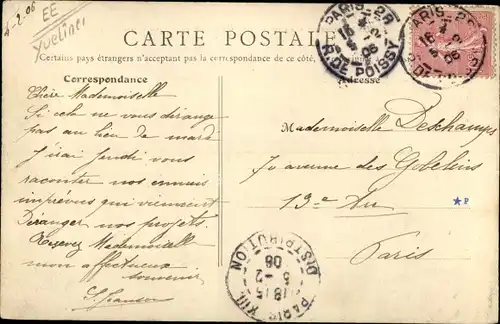 5-2-06
EE
Yvelines
CARTE POSTALE
Certains pays étrangers n'acceptant pas la correspondance de ce côté,
Correspondance
Adresse
PARIS-28
16
5-2
06
R. DE POISSY
PARIS-28
16
5-2
06
Chère Mademoiselle
Si cela ne vous dérange
pas au lieu de mardi
j'irai jeudi vous
raconter nos ennuis
imprévus qui viennent
Déranger nos projets.
Recevez Mademoiselle
mon affectueux
souvenir
Mademoiselle Deschamps
70 avenue des Gobelins
13e Arr
Paris
★P
DISTRIBUTION
18 15
5-2
06
PARIS XIII